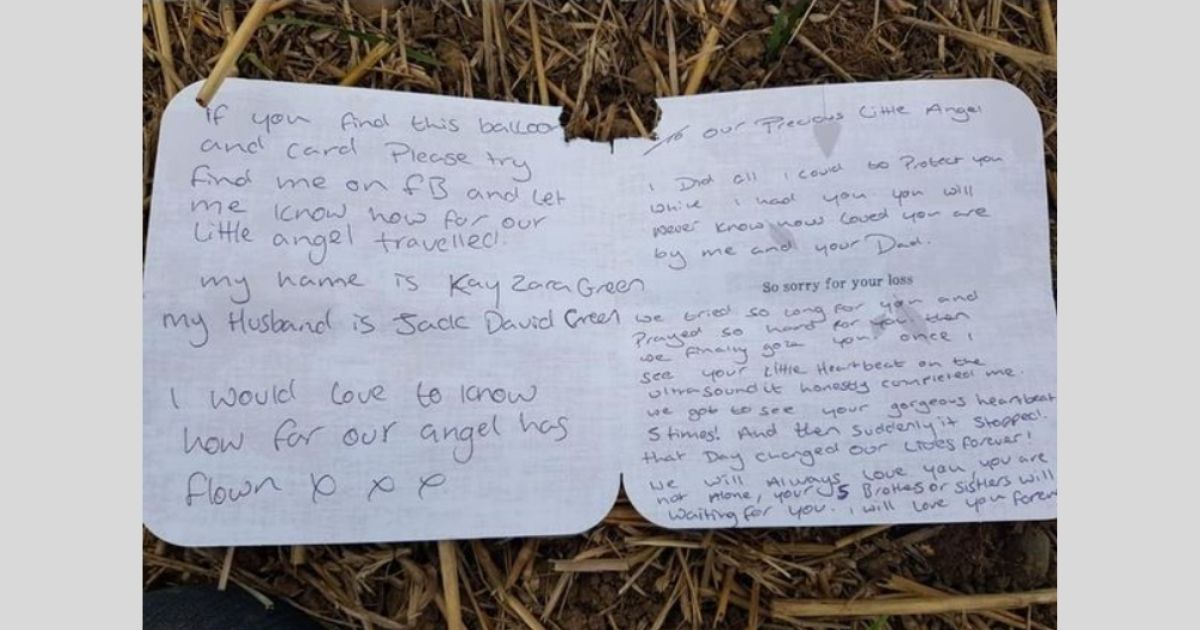 If you find this balloon
and card Please try
find me on FB and let
me know how far our
little angel travelled.
my name is Kay Zara Green
my Husband is Jack David Green
I would love to know
how far our angel has
flown x x x
To our Precious Little Angel
I Did all I could to Protect you
while I had you. you will
never know how loved you are
by me and your Dad.
So sorry for your loss
we tried so long for you and
Prayed so hard for you then
we finally you. once I
see your Little Heartbeat on the
ultrasound it honestly completed me.
we got to see your gorgeous heartbeat
5 times! And then suddenly it stopped!.
that Day changed our Lives forever!
we will Always love you, you are
not Alone, your 5 Brothes or sisters will
waiting for you. I will love you forev